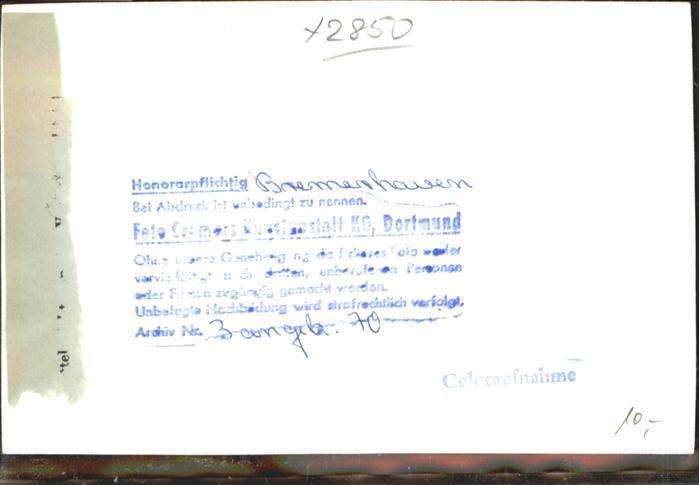 x2850
Honorarpflichtig Bremerhaven
Bei Abdruck ist unbedingt zu nennen.
Foto Cremers Kunstanstalt KG, Dortmund
Ohne unsere Genehmigung darf dieses Foto weder
vervielfältigt noch dritten, unberufenen Personen
oder Firmen zugängig gemacht werden.
Unbefugte Nachbildung wird strafrechtlich verfolgt.
Archiv Nr. 70
Coloraufnahme
10,-
tel